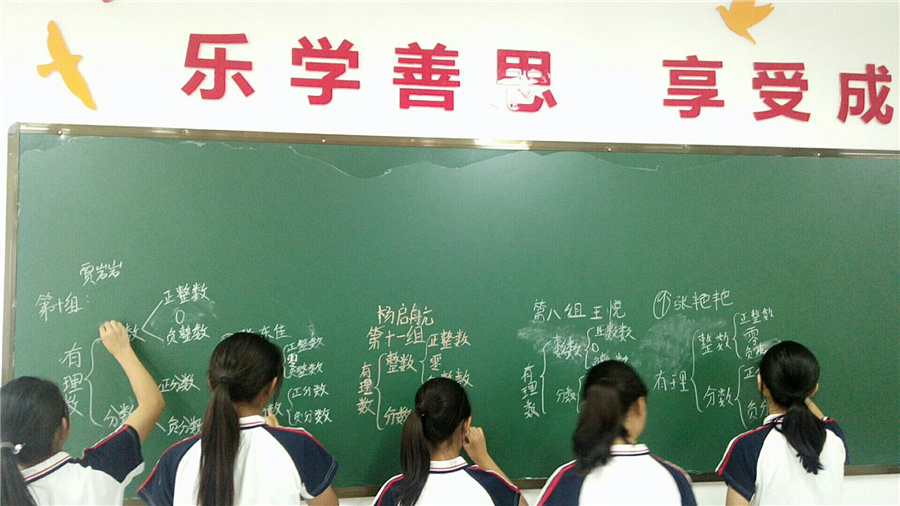 乐学善思 享受成
贾岩岩
第十组：
有理数
数
正整数
0
负整数
分数
正分数
负分数
佳
正整数
零
负整数
正分数
负分数
杨启航
第十一组
有理数
整数
正整数
零
分数
第八组 王悦
有理数
整数
正整数
0
分数
⑨张艳艳
有理
整数
正整数
零
负
分数
正
负